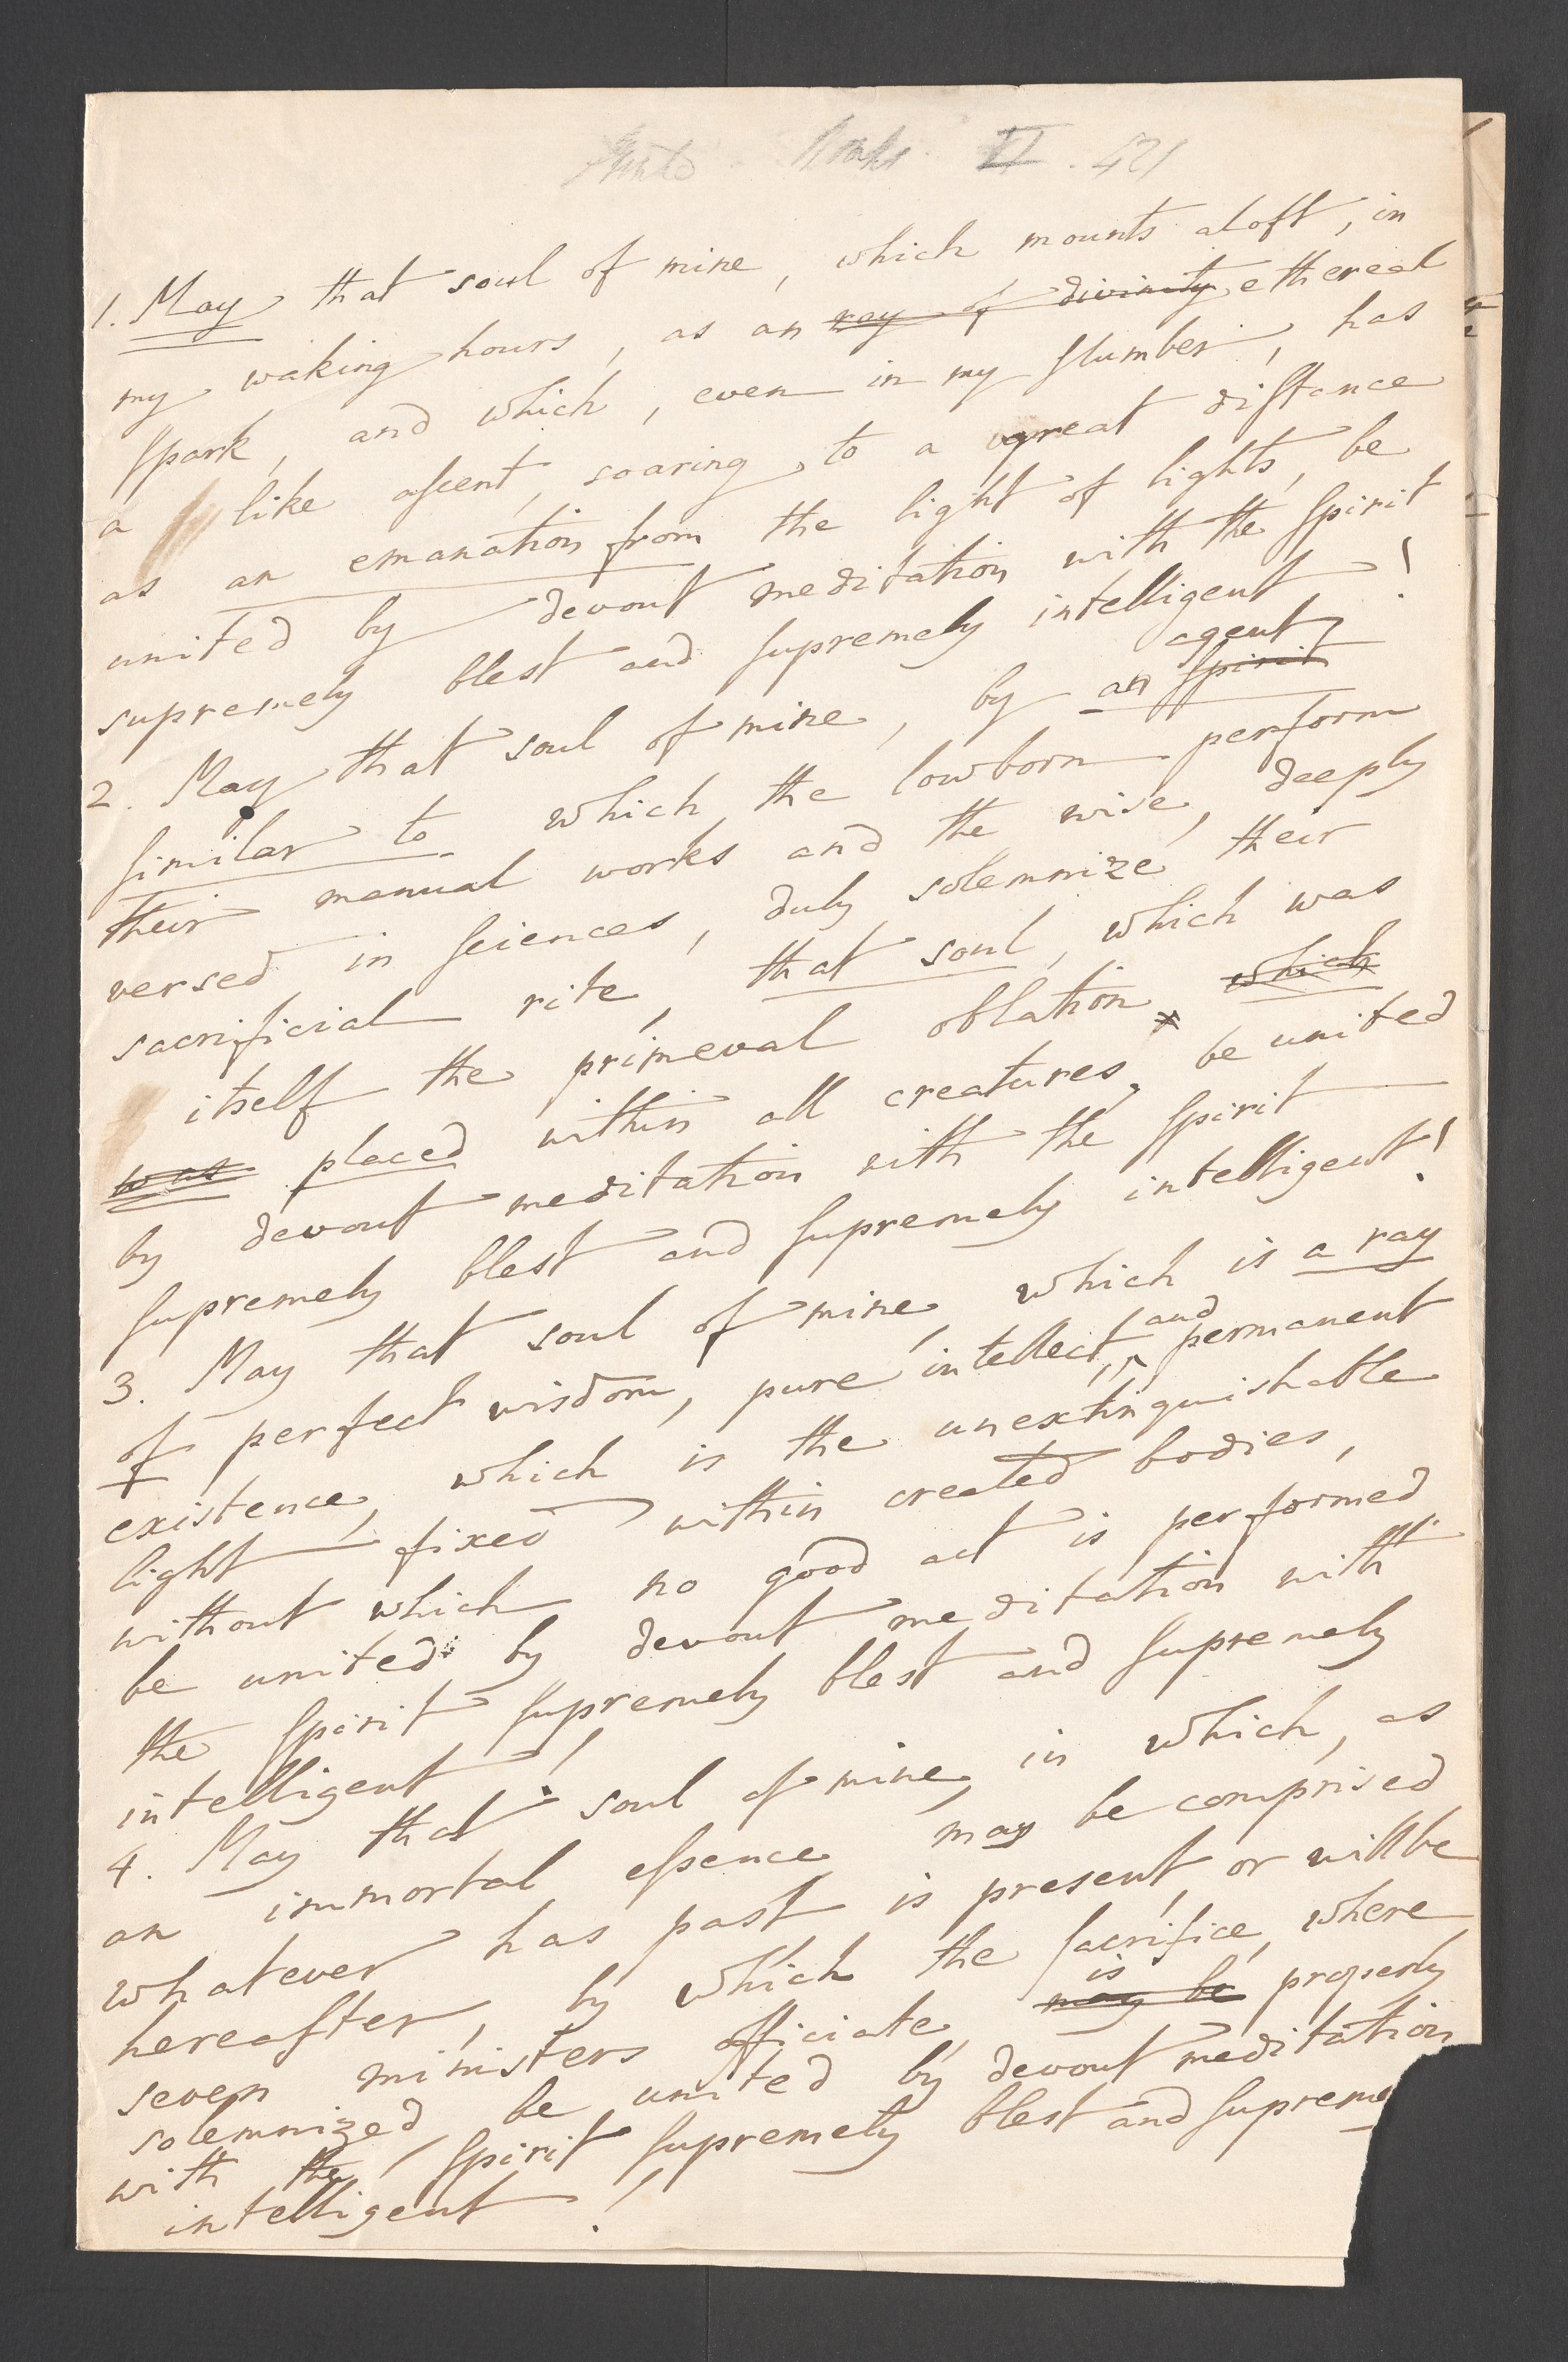 Works VI. 421
1. May that soul of mine, which mounts aloft, in
my waking hours, as an ray of divinity ethereal
spark, and which, even in my slumber, has
a like ascent, soaring to a great distance
as an emanation from the light of lights, be
united by devout meditation with the Spirit
supremely blest and supremely intelligent!
agent
2. May that soul of mine, by an Spirit
similar to which the lowborn perform
their manual works and the wise, deeply
versed in sciences, duly solemnize their
sacrificial rite, that soul, which was
itself the primeval oblation which
was placed within all creatures, be united
by devout meditation with the Spirit
supremely blest and supremely intelligent!
3. May that soul of mine, which is a ray
of perfect wisdom, pure intellect, and permanent
existence, which is the unextinguishable
light fixed within created bodies,
without which no good act is performed
be united by devout meditation with
the Spirit supremely blest and supremely
intelligent!
4. May that soul of mine, in which, as
an immortal essence may be comprised
whatever has past is present, or will be
hereafter, by which the sacrifice, where
is
seven ministers officiate, may be properly
solemnized, be united by devout meditation
with the Spirit supremely blest and supreme
intelligent!